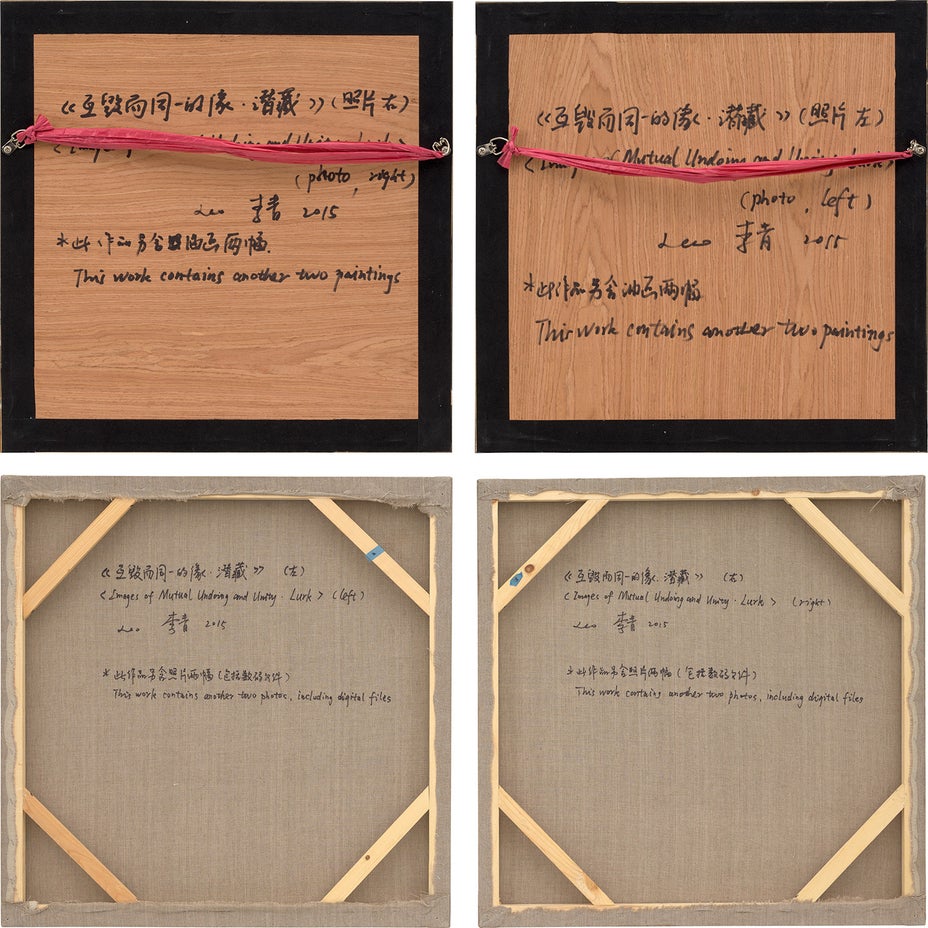 《互毁而同一的像·潜藏》(照片 右)
Undoing and
(photo, right)
Leo 李青 2015
*此作品另含油画两幅.
This work contains another two paintings
《互毁而同一的像·潜藏》(照片 左)
Mutual Undoing and
(photo, left)
Leo 李青 2015
*此作品另含油画两幅
This work contains another two paintings
《互毁而同一的像·潜藏》 (左)
<Images of Mutual Undoing and Unity·Lurk> (left)
Leo 李青 2015
*此作品另含照片两幅(包括数码文件)
This work contains another two photos, including digital files
《互毁而同一的像·潜藏》 (右)
<Images of Mutual Undoing and Unity·Lurk> (right)
Leo 李青 2015
*此作品另含照片两幅(包括数码文件)
This work contains another two photos, including digital files